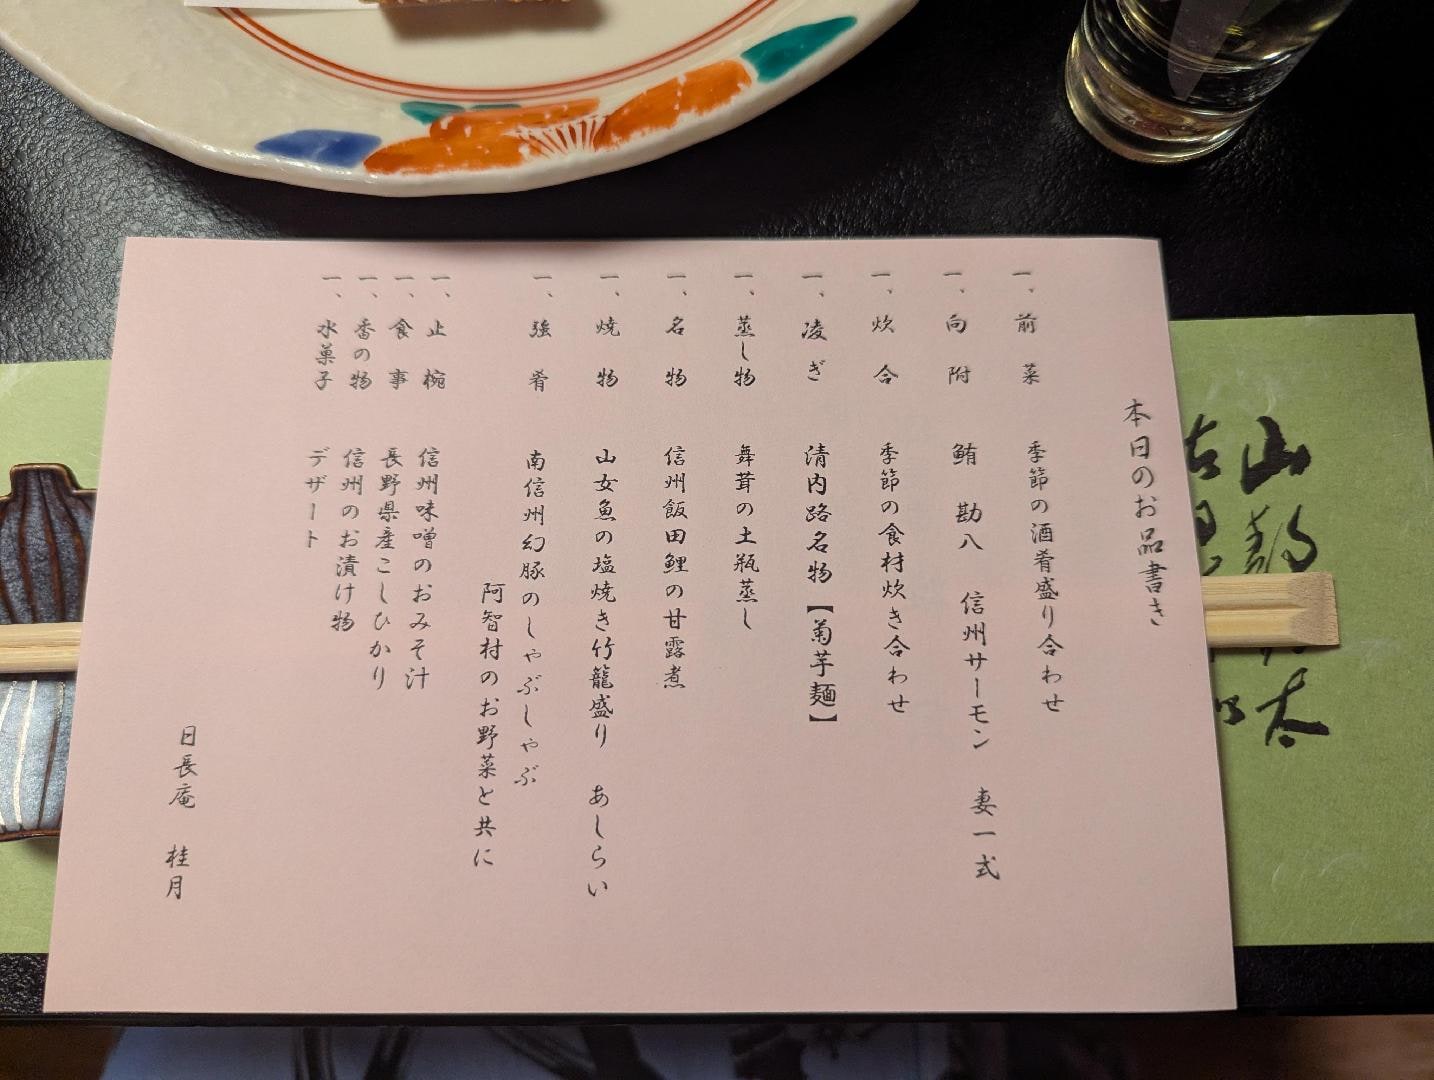 本日のお品書き
一、前菜 季節の酒肴盛り合わせ
一、向附 鮪 勘八 信州サーモン 妻一式
一、炊合 季節の食材炊き合わせ
一、凌ぎ 清内路名物【菊芋麺】
一、蒸し物 舞茸の土瓶蒸し
一、名物 信州飯田鯉の甘露煮
一、焼物 山女魚の塩焼き竹籠盛り あしらい
一、強肴 南信州幻豚のしゃぶしゃぶ
阿智村のお野菜と共に
一、止椀 信州味噌のおみそ汁
一、食事 長野県産こしひかり
一、香の物 信州のお漬け物
一、水菓子 デザート
日長庵 桂月